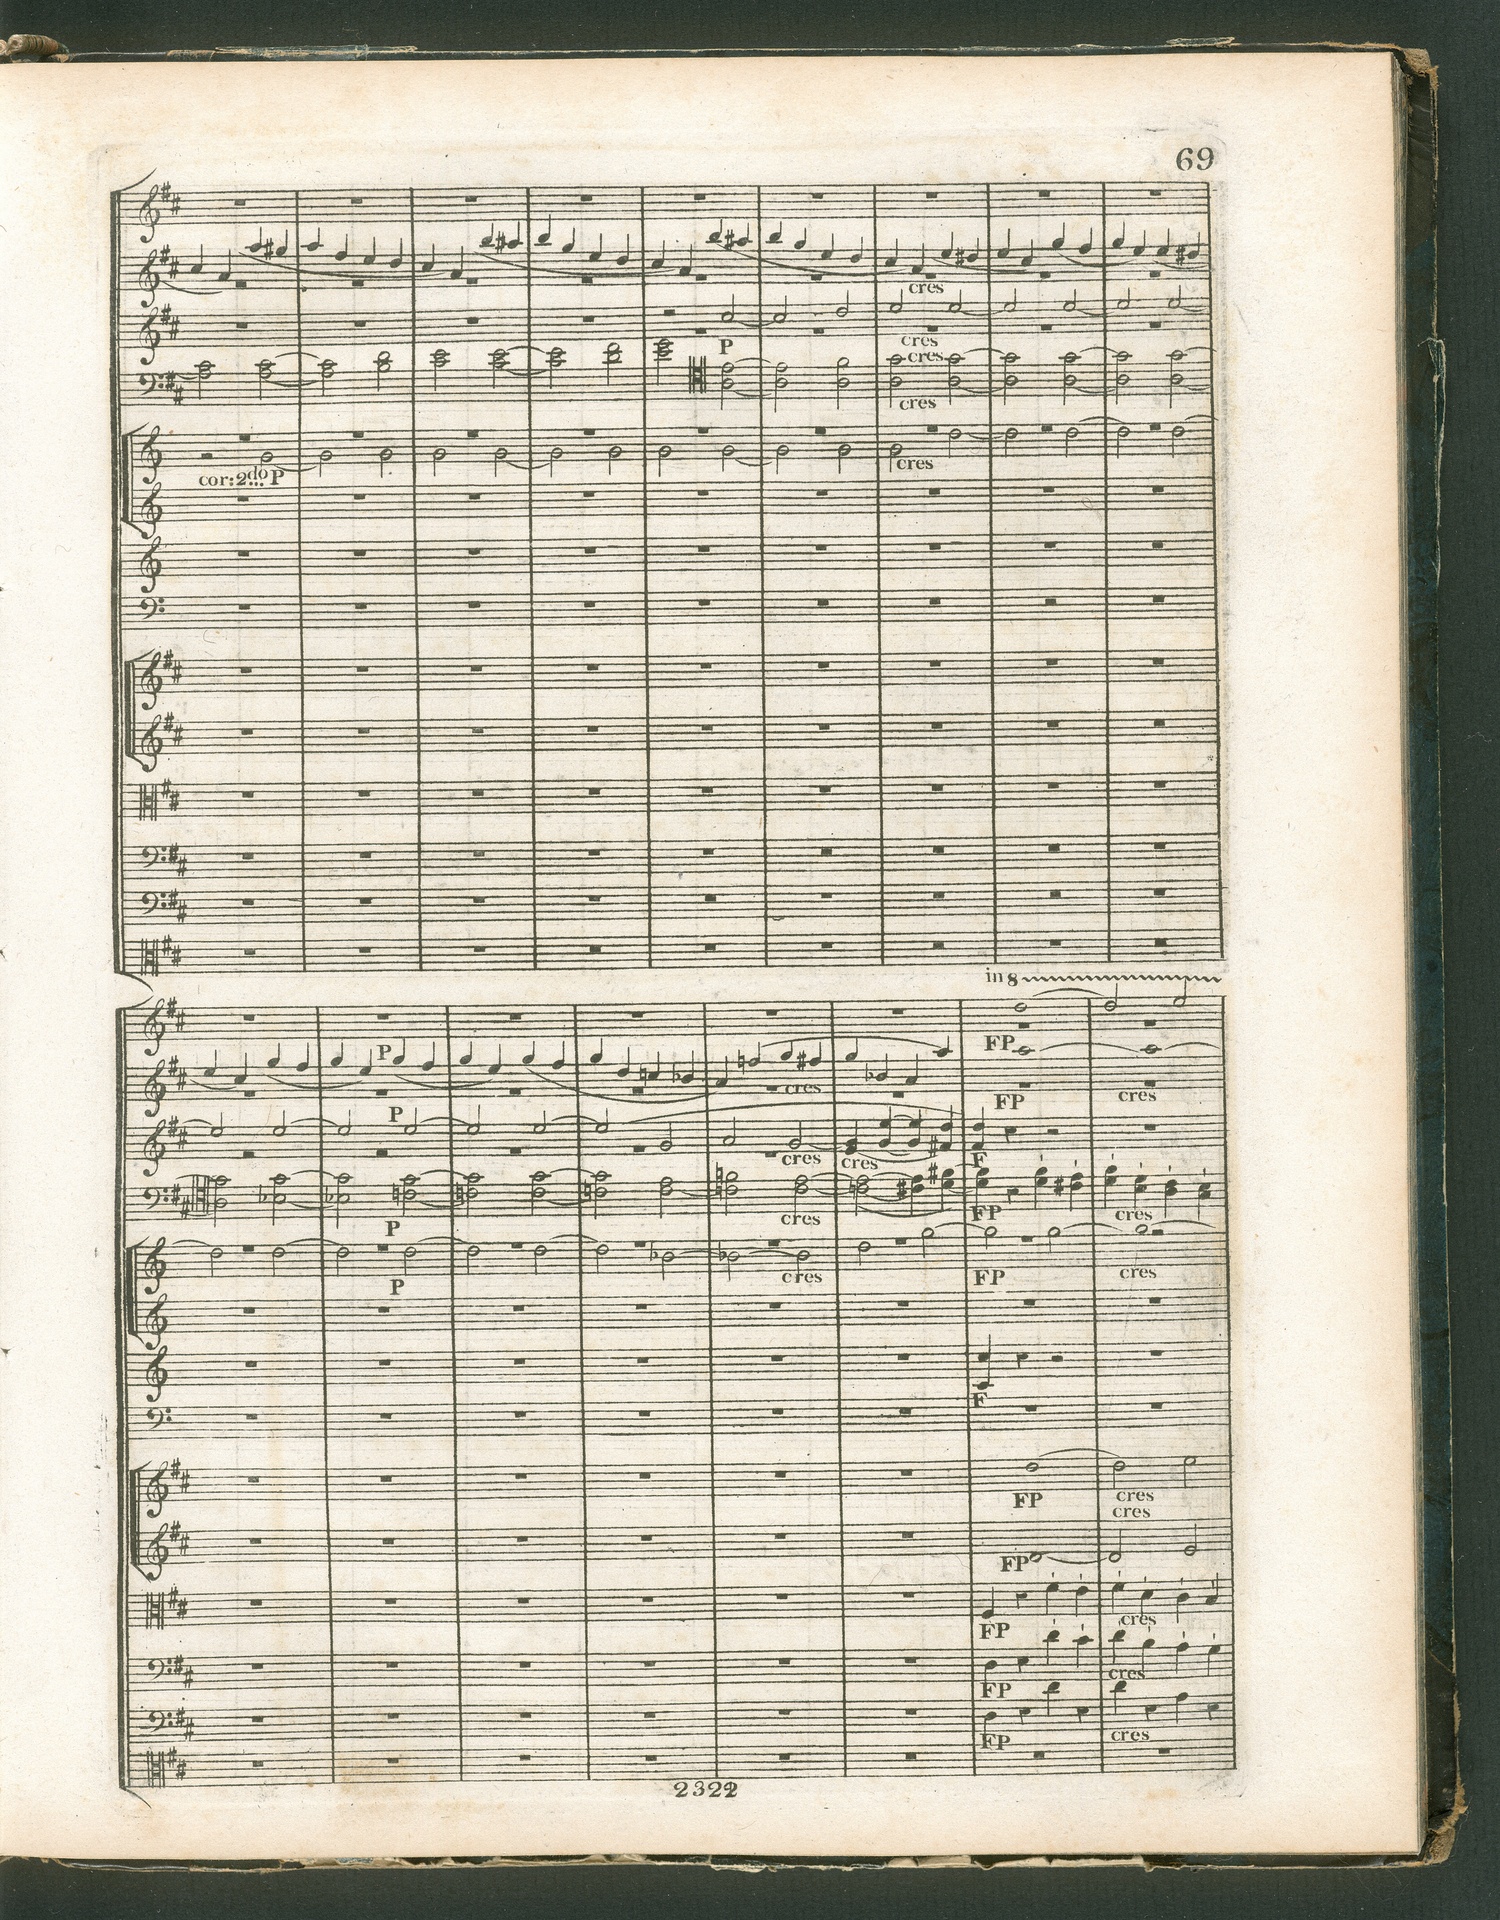 69
cres
P
cres
cres
cres
cor: 2do P
cres
in 8
P
FP
cres
FP
cres
P
cres
cres
F
P
cres
FP
cres
P
cres
FP
cres
F
FP
cres
cres
FP
FP
cres
FP
cres
FP
cres
2322